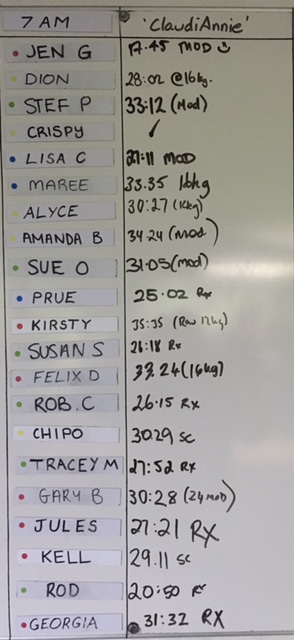 7 AM 'ClaudiAnnie'
JEN G 17.45 MOD
DION 28:02 @16kg.
STEF P 33:12 (Mod)
CRISPY ✓
LISA C 27:11 MOD
MAREE 33.35 16kg
ALYCE 30:27 (16kg)
AMANDA B 34.24 (mod)
SUE O 31.05 (mod)
PRUE 25.02 Rx
KIRSTY 35:35 (Raw 12kg)
SUSAN S 26:18 Rx
FELIX D 33.24 (16kg)
ROB.C 26.15 RX
CHIPO 30.29 SC
TRACEY M 27:52 RX
GARY B 30:28 (24 MOD)
JULES 27:21 RX
KELL 29.11 SC
ROD 20:50
GEORGIA 31:32 RX